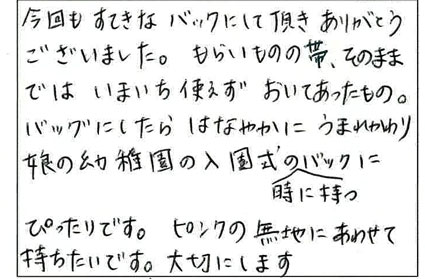 今回も すてきな バックにして頂き ありがとう
ございました。 もらいものの帯、そのまま
では いまいち使えず おいてあったもの。
バッグにしたら はなやかに うまれかわり
娘の幼稚園の入園式のバックに
時に持つ
ぴったりです。 ピンクの無地にあわせて
持ちたいです。大切にします